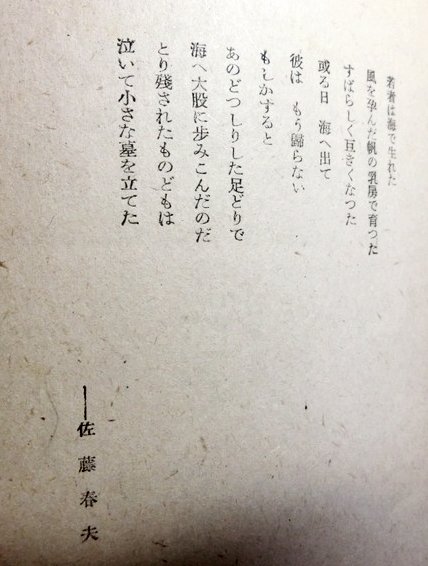 若者は海で生れた
風を孕んだ帆の乳房で育つた
すばらしく巨きくなつた
或る日 海へ出て
彼は もう歸らない
もしかすると
あのどつしりした足どりで
海へ大股に歩みこんだのだ
とり残されたものどもは
泣いて小さな墓を立てた
――佐藤春夫